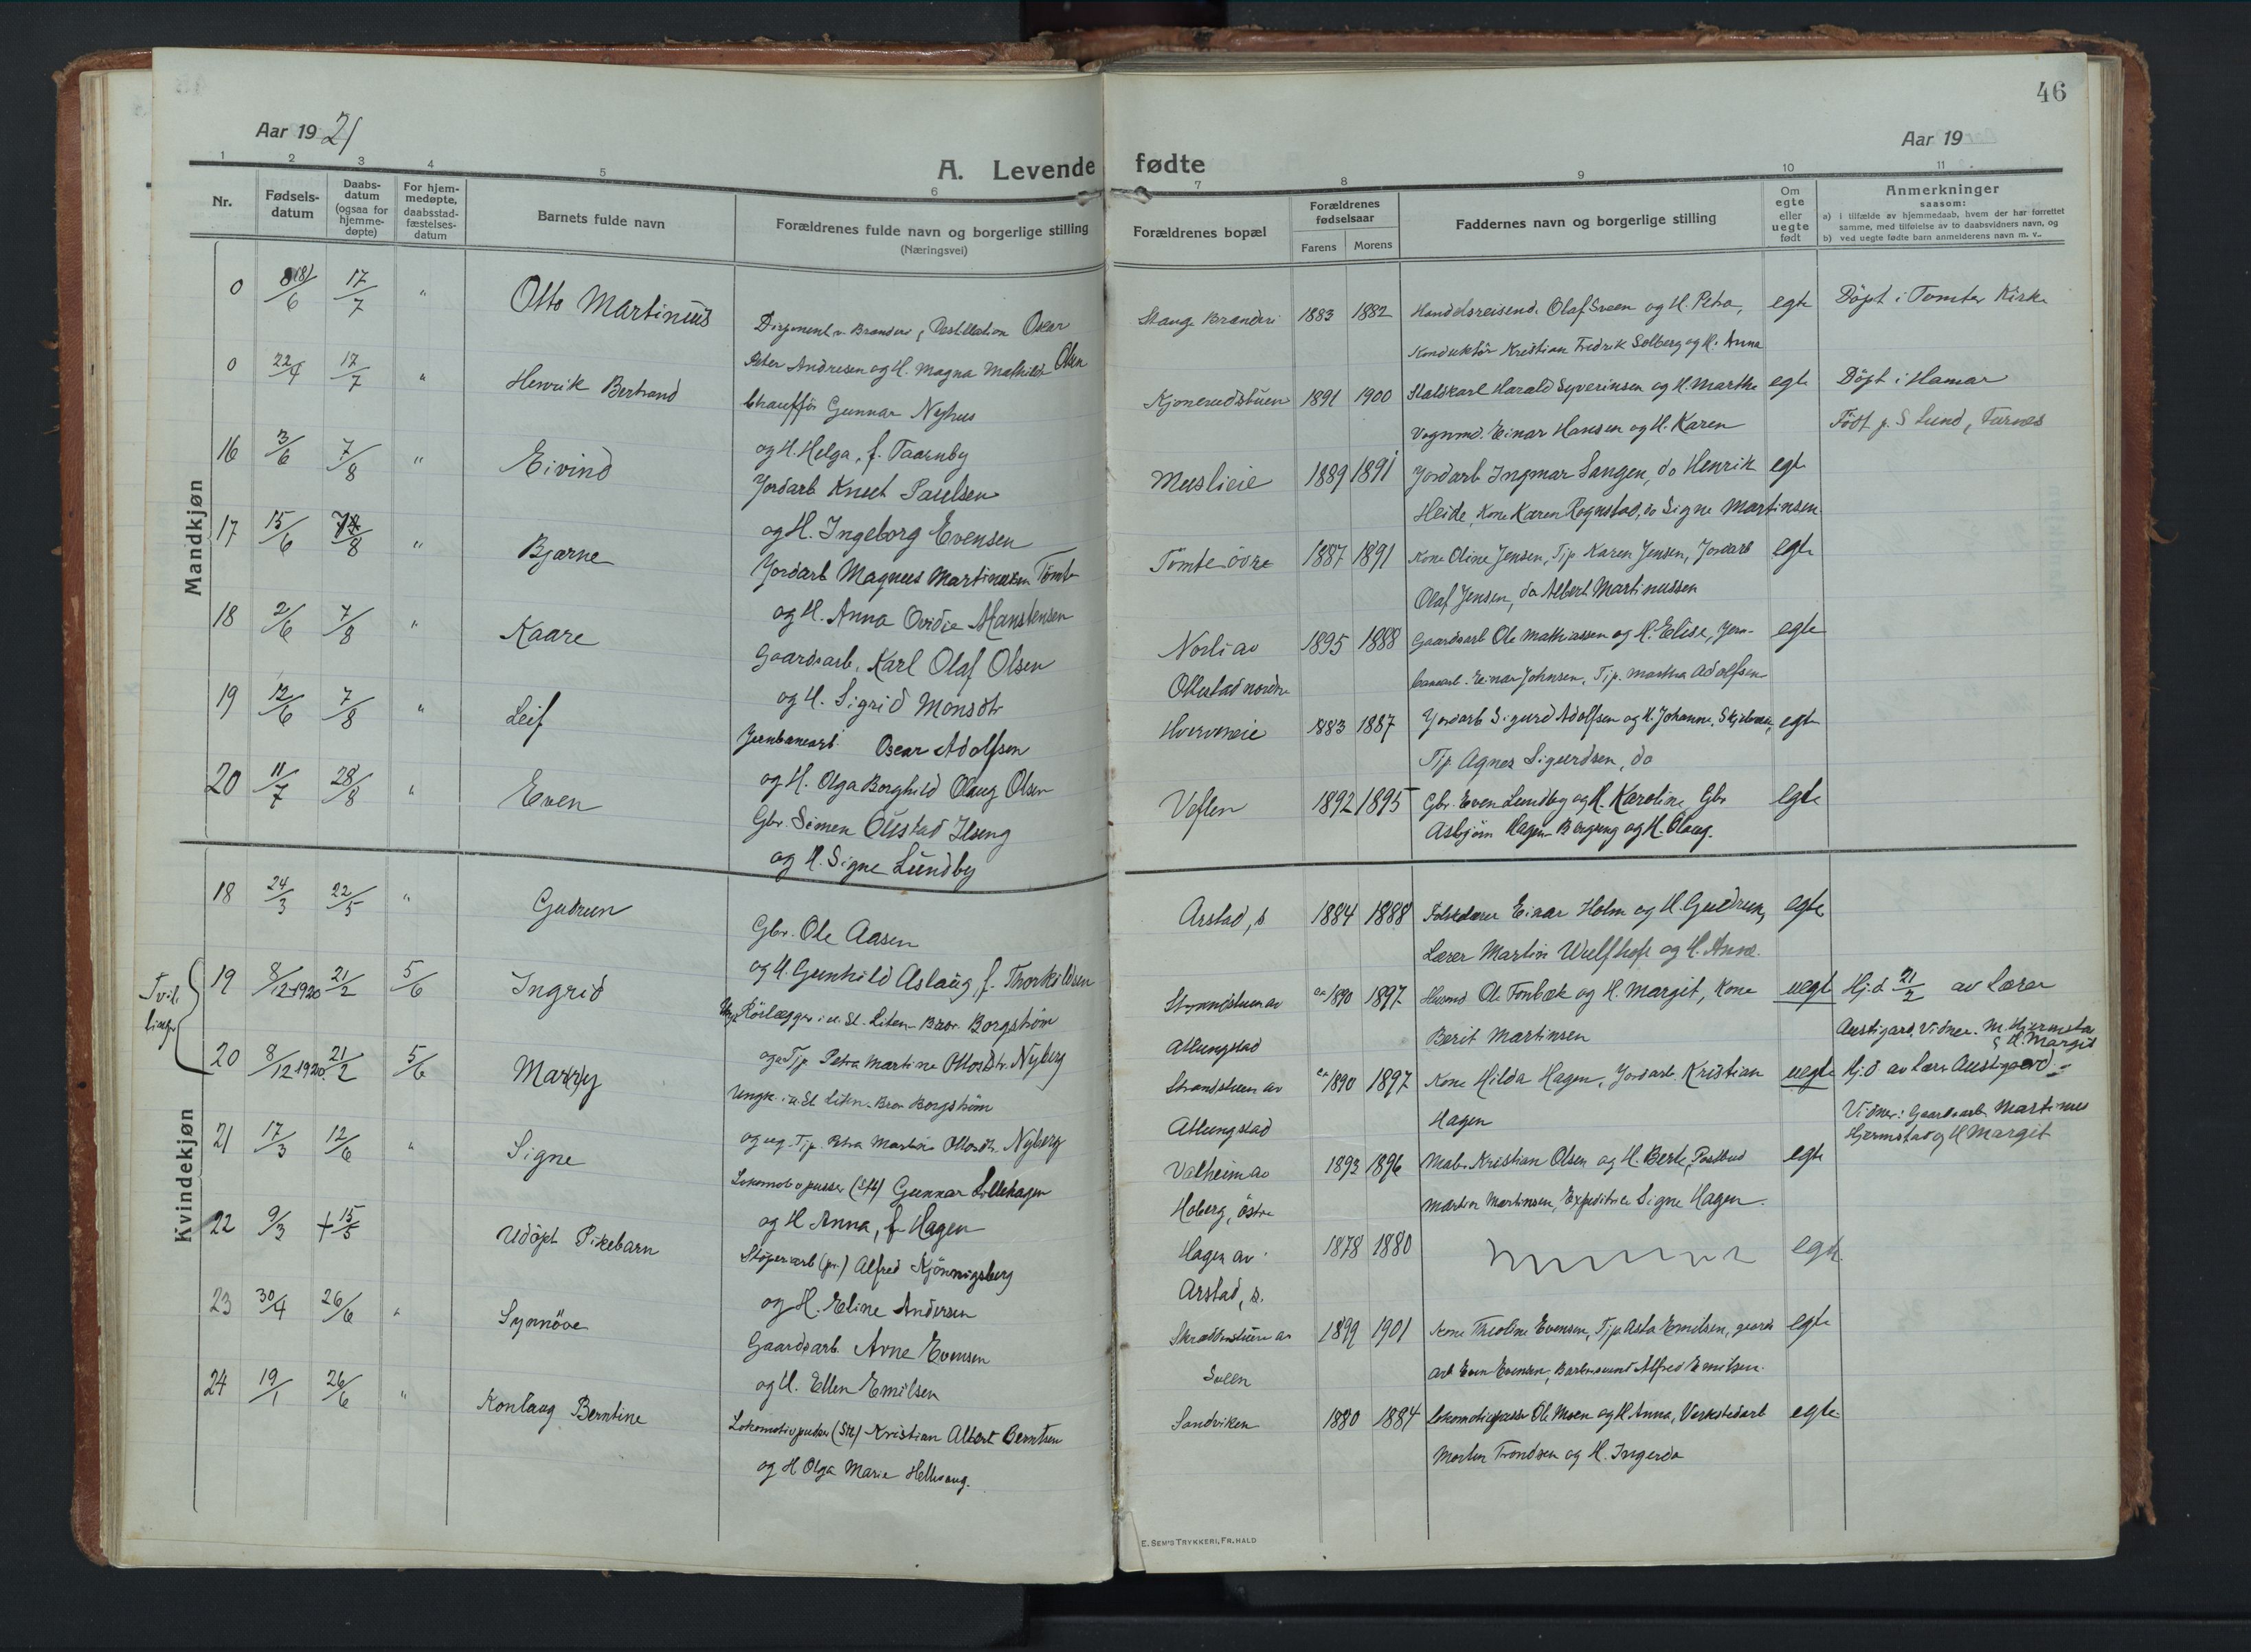 46
Aar 1921
Aar 19
A. Levende fødte
1 2 3 4 5 6 7 8 9 10 11
Nr.
Fødsels-
datum
Daabs-
datum
(ogsaa for
hjemme-
døpte)
For hjem-
medøpte,
daabsstad-
fæstelses-
datum
Barnets fulde navn
Forældrenes fulde navn og borgerlige stilling
(Næringsvei)
Forældrenes bopæl
Forældrenes
fødselsaar
Farens Morens
Faddernes navn og borgerlige stilling
Om
egte
eller
uegte
født
Anmerkninger
saasom:
a) i tilfælde av hjemmedaab, hvem der har forrettet
samme, med tilføielse av to daabsvidners navn, og
b) ved uegte fødte barn anmelderens navn m. v.
Mandkjøn
0 17/7 " Otto Martinius
Disponent v. Brænderi, Destillation Oscar
Peter Andresen og H. Magna Mathilde Olsen
Stange Brænderi 1883 1882
Handelsreisende Olaf Sveen og H. Petra,
Konduktör Kristian Fredrik Solberg og H. Anna
egte Döpt i Tomter Kirke
0 22/4 17/7 " Henrik Bertrand
Chaufför Gunnar Nyhus
og H. Helga, f. Taarnby
Kjonerudstuen 1891 1900
Staldkarl Harald Syverinsen og H. Marthe
Vognmd. Einar Hansen og H. Karen
egte Döpt i Hamar
Födt p. S Lund, Furnes
16 3/6 7/8 " Eivind
Jordarb Knut Paulsen
og H. Ingeborg Evensen
Muslieie 1889 1891
Jordarb Ingmar Langen, do Henrik
Heide, Kone Karen Rognstad, do Signe Martinsen
egte
17 15/6 /8 " Bjarne
Jordarb Magnus Martinusen Tomte
og H. Anna Ovidie Hanstensen
Tomte övre 1887 1891
Kone Oline Jensen, Tjp. Karen Jensen, Jordarb
Olaf Jensen, do Albert Martinussen
egte
18 2/6 7/8 " Kaare
Gaardsarb. Karl Olaf Olsen
og H. Sigrid Monsdtr
Norli av
Ottestad nordre
1895 1888
Gaardsarb Ole Mathiassen og H. Elise, Jern-
banearb. Einar Johnsen, Tjp. Martha Adolfsen
egte
19 12/6 7/8 " Leif
Jernbanearb. Oscar Adolfsen
og H. Olga Borghild Olaug Olsen
Hverveneie 1883 1887
Jordarb Sigurd Adolfsen og H. Johanne,
Tjp. Agnes Sigurdsen, do
egte
20 11/7 28/8 " Even
Gbr. Simen Oustad Ilseng
og H. Signe Lundby
Veflen 1892 1895
Gbr. Even Lundby og H. Karoline, Gbr
Asbjörn Hagen Bergseng og H. Olaug.
egte
Kvindekjøn
18 24/3 22/5 " Gudrun
Gbr. Ole Aasen
og H. Gunhild Aslaug, f. Thorkildsen
Arstad, s 1884 1888
Einar Holm og H. Gudrun,
Lærer Martin og H. Anna.
egte
Tvil-
linger
19 8/12 1920 21/2 5/6 Ingrid
Ungk. Rörlægger i u. St. Liten-Bror Borgström
og Tjp. Petra Martine Ottosdtr. Nyberg
Strandstuen av
Atlungstad
ca 1890 1897
Husmd Ole Fonbæk og H. Margit, Kone
Berit Martinsen
uegte
Hj.d. 21/2 av Lærer
Austigard. Vidner. M. Hjermstad
& H. Margit
20 8/12 1920. 21/2 5/6 Marry
Ungk. i u. St Liten-Bror Borgström
og ug. Tjp. Petra Martine Ottosdtr. Nyberg
Strandstuen av
Atlungstad
ca 1890 1897
Kone Hilda Hagen, Jordarb. Kristian
Hagen
uegte
Hj.d av Lærer Austigaard.-
Vidner: Gaardsarb Martinus
Hjermstad og H Margit
21 17/3 12/6 " Signe
Lokomotivpusser (Stb) Gunnar Lillehagen
og H Anna, f. Hagen
Valheim av
Hoberg, östre
1893 1896
Kristian Olsen og H. Berte, Postbud
Martin Martinsen, Expeditrice Signe Hagen.
egte
22 9/3 + 15/5 Udöpt Pikebarn
Stöperiarb (pr.) Alfred Kjönnigsberg
og H. Eline Andersen
Hagen av
Arstad, s.
1878 1880
egte
23 30/4 26/6 " Synnöve
Gaardsarb. Arne Evensen
og H. Ellen Emilsen
Skræddestuen av
Sveen
1899 1901
Kone Theoline Evensen, Tjp. Asta Emilsen, gaards
arb Even Evensen, Alfred Emilsen.
egte
24 19/1 26/6 " Konlaug Berntine
Lokomotivpudser (Stb) Kristian Albert Berntsen
og H Olga Marie Hellhaug.
Sandviken 1880 1884
Lokomotivpusser Ole Moen og H Anna, Verkstedarb
Morten Trondsen og H. Ingerda
egte
E. SEM'S TRYKKERI, FR.HALD